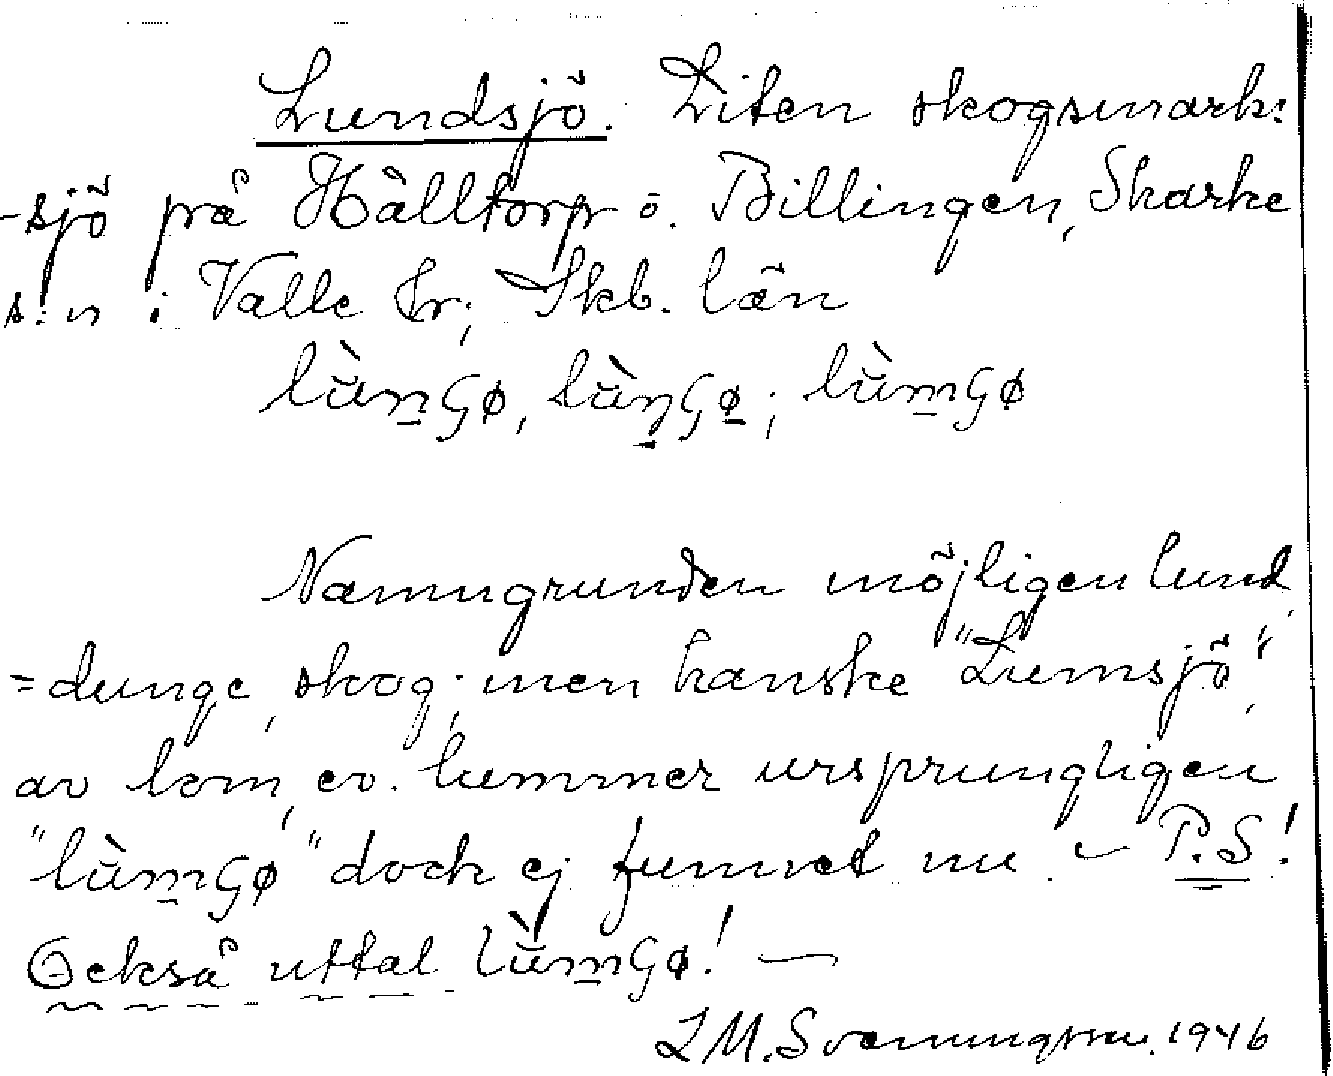 Lundsjö. Liten skogsmark:
-sjö på Hålltorp ö. Billingen, Skarke
s:n i Valle hr; Skb. län
lùnGø, lùŋGø; lùmGø
Namngrunden möjligen lund
=dunge, skog; men kanske "Lumsjö",
av lom, ev. lummer ursprungligen
"lùmGø" dock ej funnet nu. – P.S!
Också uttal lùmGø! —
L M. Svenungsson. 1946